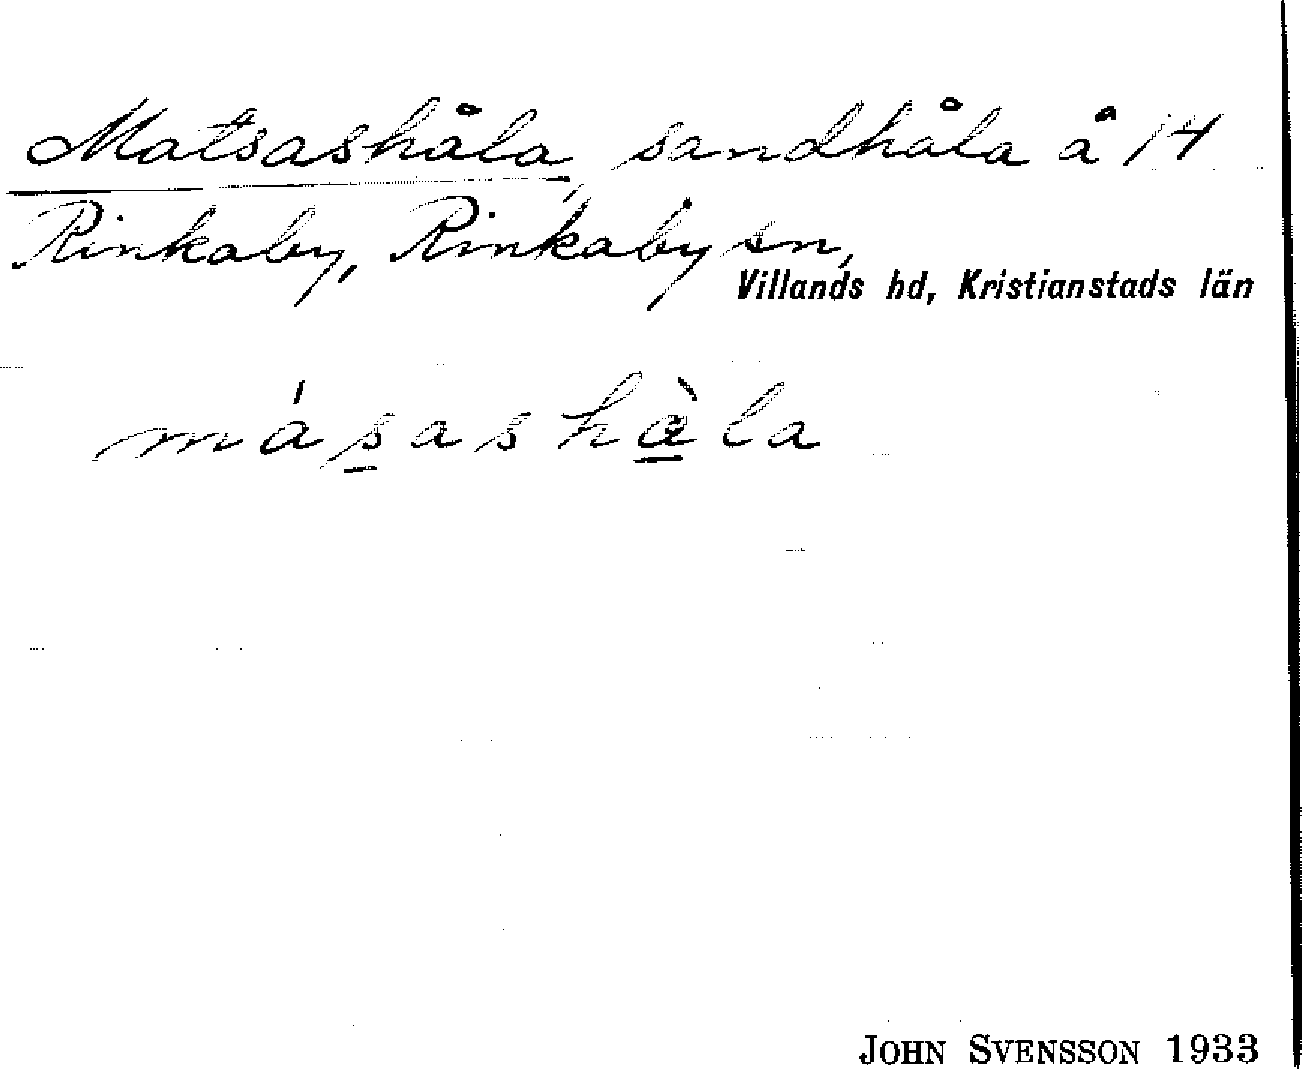 Matsashåla, sandhåla å 14
Rinkaby, Rinkaby sn,
Villands hd, Kristianstads län
má̱sashàla
JOHN SVENSSON 1933